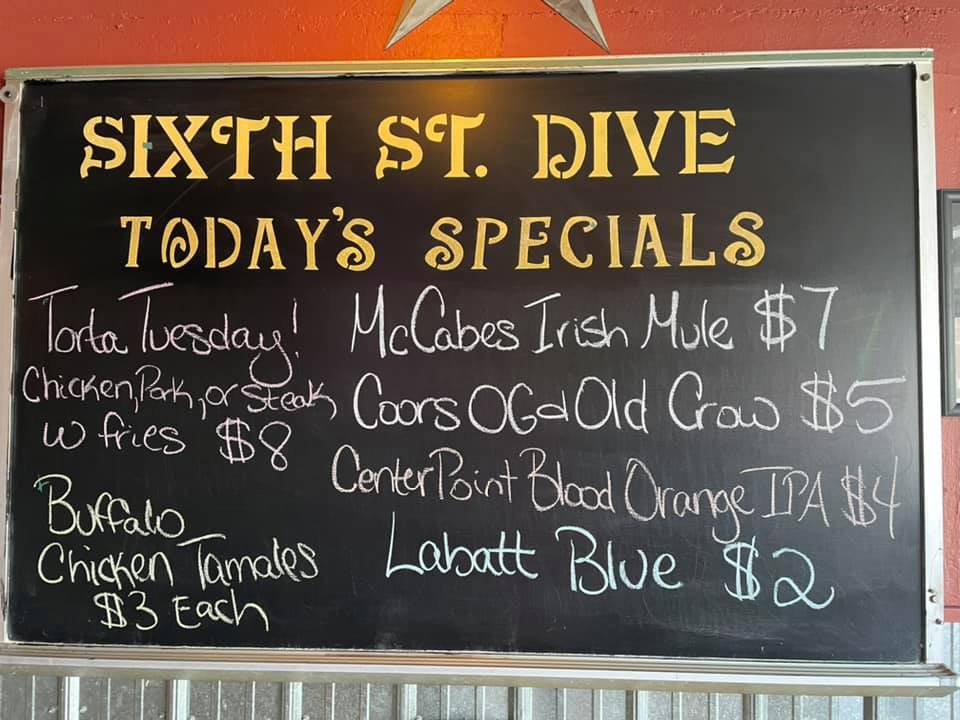 SIXTH ST. DIVE
TODAY'S SPECIALS
Torta Tuesday!
Chicken, Pork, or Steak,
w fries $8
Buffalo
Chicken Tamales
$3 Each
McCabes Irish Mule $7
Coors OG & Old Crow $5
CenterPoint Blood Orange IPA $4
Labatt Blue $2